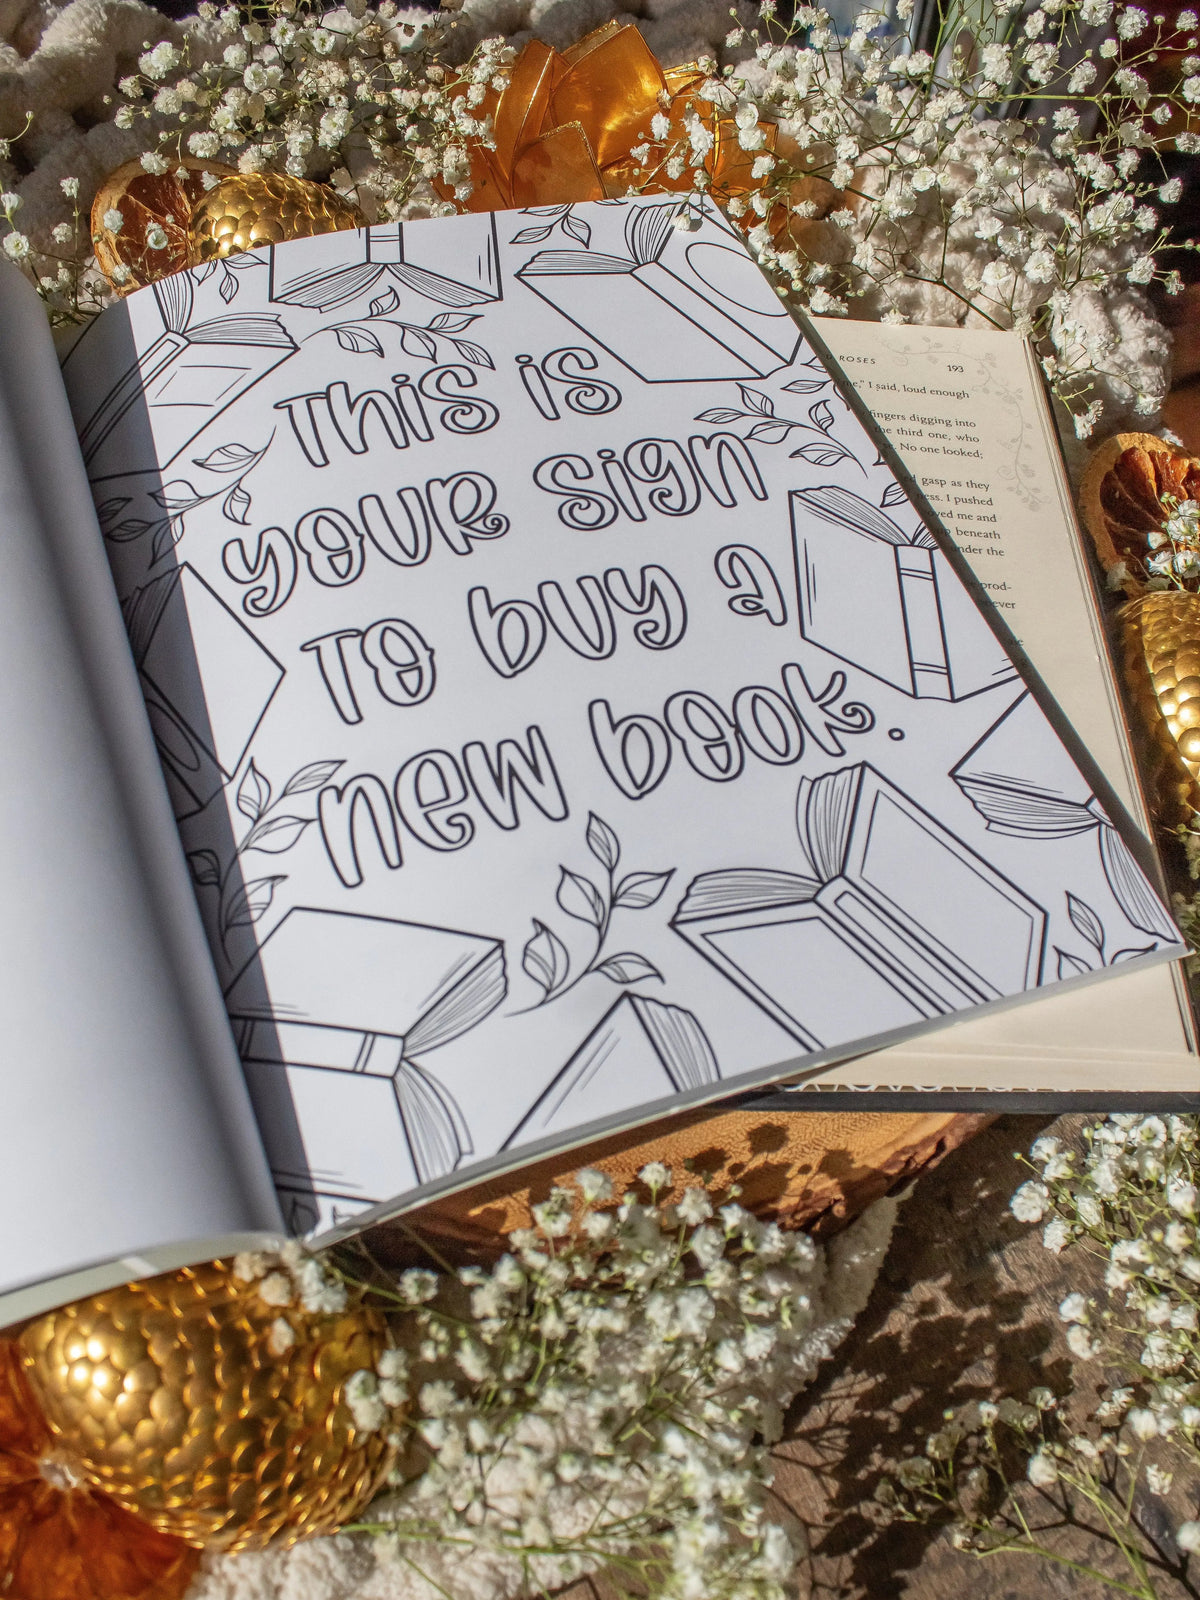 This is
your sign
to buy a
new book.
ROSES
193
me," I said, loud enough
fingers digging into
the third one, who
No one looked;
gasp as they
I pushed
me and
beneath
under the